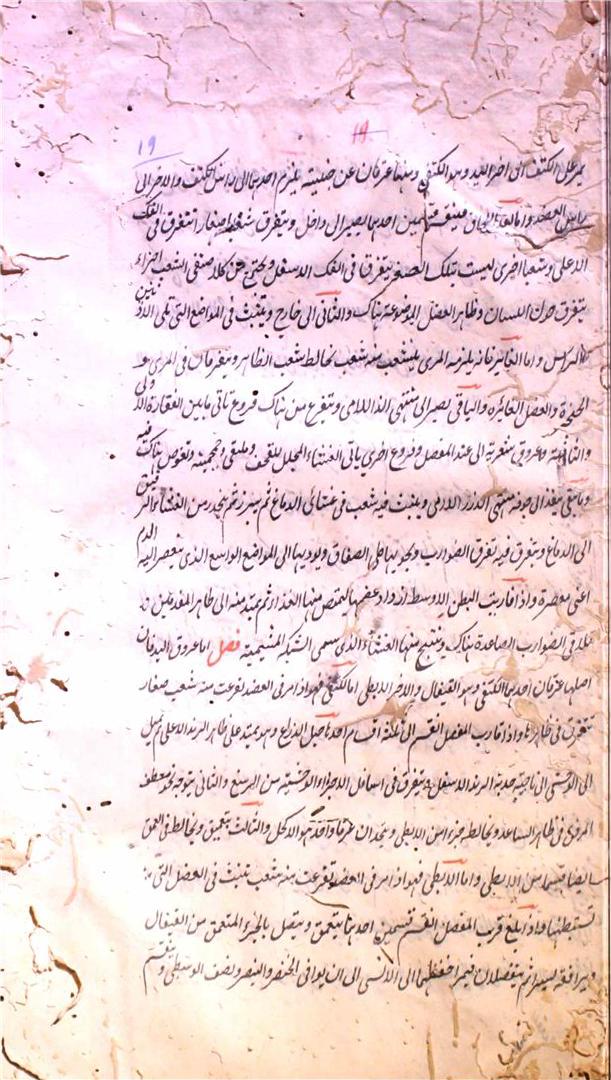 ١٩
يمر على الكتف الى آخر اليد وهو الكتفي ومنها عرقان عن جنبيته يلزم احدهما الى راس الكتف والآخر الى
راس العضد واما فينقسم قسمين احدهما يصير الى داخل ويتفرق شعبا صغارا تتفرق في الفك
الاعلى وشعبا اخرى ليست بتلك الصغر يتفرق في الفك الاسفل ويجتمع عن كلا صنفي الشعب اجزاء
يتفرق حول اللسان وظاهر العضل الموضوعة هناك والثاني الى خارج وينبث في المواضع التي تلى الاذنين
والراس واما الغاير فانه يلزم المرى يتشعب منه شعب تخالط شعب الظاهر ويتفرقان في المرى و
الحنجرة والعضل الغائرة والباقي يصير الى منتهى اللامي ويتفرع من هناك فروع تاتي مابين الفقارة الاولى
والثانية وعروق شعرية الى عند المفصل وفروع اخرى ياتي الغشاء المجلل للقحف وملتقى جمجمته وتغوص هناك فيه
والباقي ينفذ الى جوف منتهى الدرز اللامي وينبث فيه شعب في غشائي الدماغ ثم يبرز ثم ينحدر من الغشاء
الى الدماغ ويتفرق فيه تفرق الضوارب ويحويها طي الصفاق ويوديها الى المواضع الواسع الذي ينعصر اليه الدم
اعني معصرة واذا قاربت البطن الاوسط ازداد عظمها لتمتص منها الغذاء ثم يمتد منه الى ظاهر المقدمين و
تلاقي الضوارب الصاعدة هناك وينتسج منها الغشاء الذي يسمى الشبكة المشيمية فصل اما عروق اليدين فان
اصلها عرقان احدهما الكتفي وهو القيفال والآخر الابطي اما الكتفي فهو اذا مر في العضد تفرعت منه شعب صغار
تتفرق في ظاهرها واذا قارب المفصل انقسم الى ثلثة اقسام احدها حبل الذراع وهو يمتد على ظاهر الزند الاعلى ثم يميل
الى الوحشي الى ناحية حدبة الزند الاسفل ويتفرق في اسافل الاجزاء الوحشية من الرسغ والثاني يتوجه نحو معطف
المرفق في ظاهر الساعد ويخالطه جزء من الابطي ويتحدان عرقا واحدا هو الاكحل والثالث يتعمق ويخالط في العمق
ايضا قسما من الابطي واما الابطي فهو اذا مر في العضد تفرعت منه شعب تنبث في العضل التي
تستبطنها واذا بلغ قريب المفصل انقسم قسمين احدهما يتعمق ويتصل بالجزء المتعمق من القيفال
ويرافقه يسيرا ثم ينفصلان فيمر اخفظهما الى الانسي الى ان يوافي الخنصر والبنصر ونصف الوسطى وينقسم